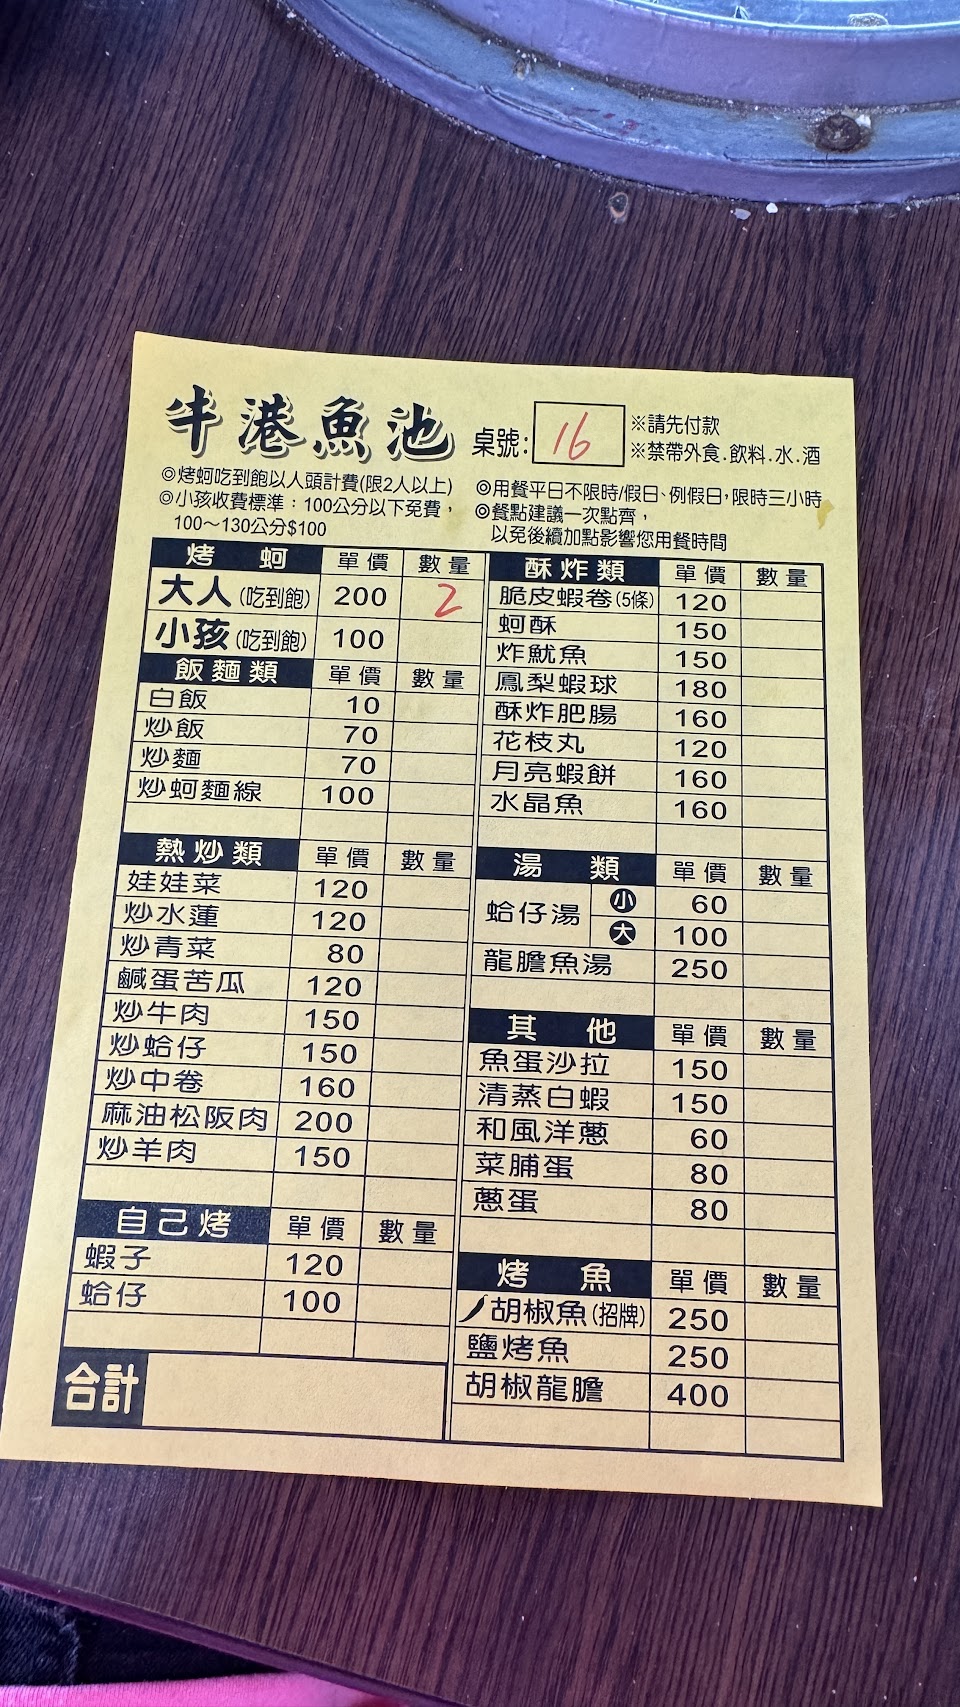 牛港魚池 桌號: 16
※請先付款
※禁帶外食.飲料.水.酒
◎烤蚵吃到飽以人頭計費(限2人以上)
◎小孩收費標準：100公分以下免費，
100～130公分$100
◎用餐平日不限時/假日、例假日，限時三小時
◎餐點建議一次點齊，
以免後續加點影響您用餐時間
烤 蚵 單價 數量
大人(吃到飽) 200 2
小孩(吃到飽) 100
飯麵類 單價 數量
白飯 10
炒飯 70
炒麵 70
炒蚵麵線 100
熱炒類 單價 數量
娃娃菜 120
炒水蓮 120
炒青菜 80
鹹蛋苦瓜 120
炒牛肉 150
炒蛤仔 150
炒中卷 160
麻油松阪肉 200
炒羊肉 150
自己烤 單價 數量
蝦子 120
蛤仔 100
合計
酥炸類 單價 數量
脆皮蝦卷(5條) 120
蚵酥 150
炸魷魚 150
鳳梨蝦球 180
酥炸肥腸 160
花枝丸 120
月亮蝦餅 160
水晶魚 160
湯 類 單價 數量
蛤仔湯 小 60
大 100
龍膽魚湯 250
其 他 單價 數量
魚蛋沙拉 150
清蒸白蝦 150
和風洋蔥 60
菜脯蛋 80
蔥蛋 80
烤 魚 單價 數量
胡椒魚(招牌) 250
鹽烤魚 250
胡椒龍膽 400